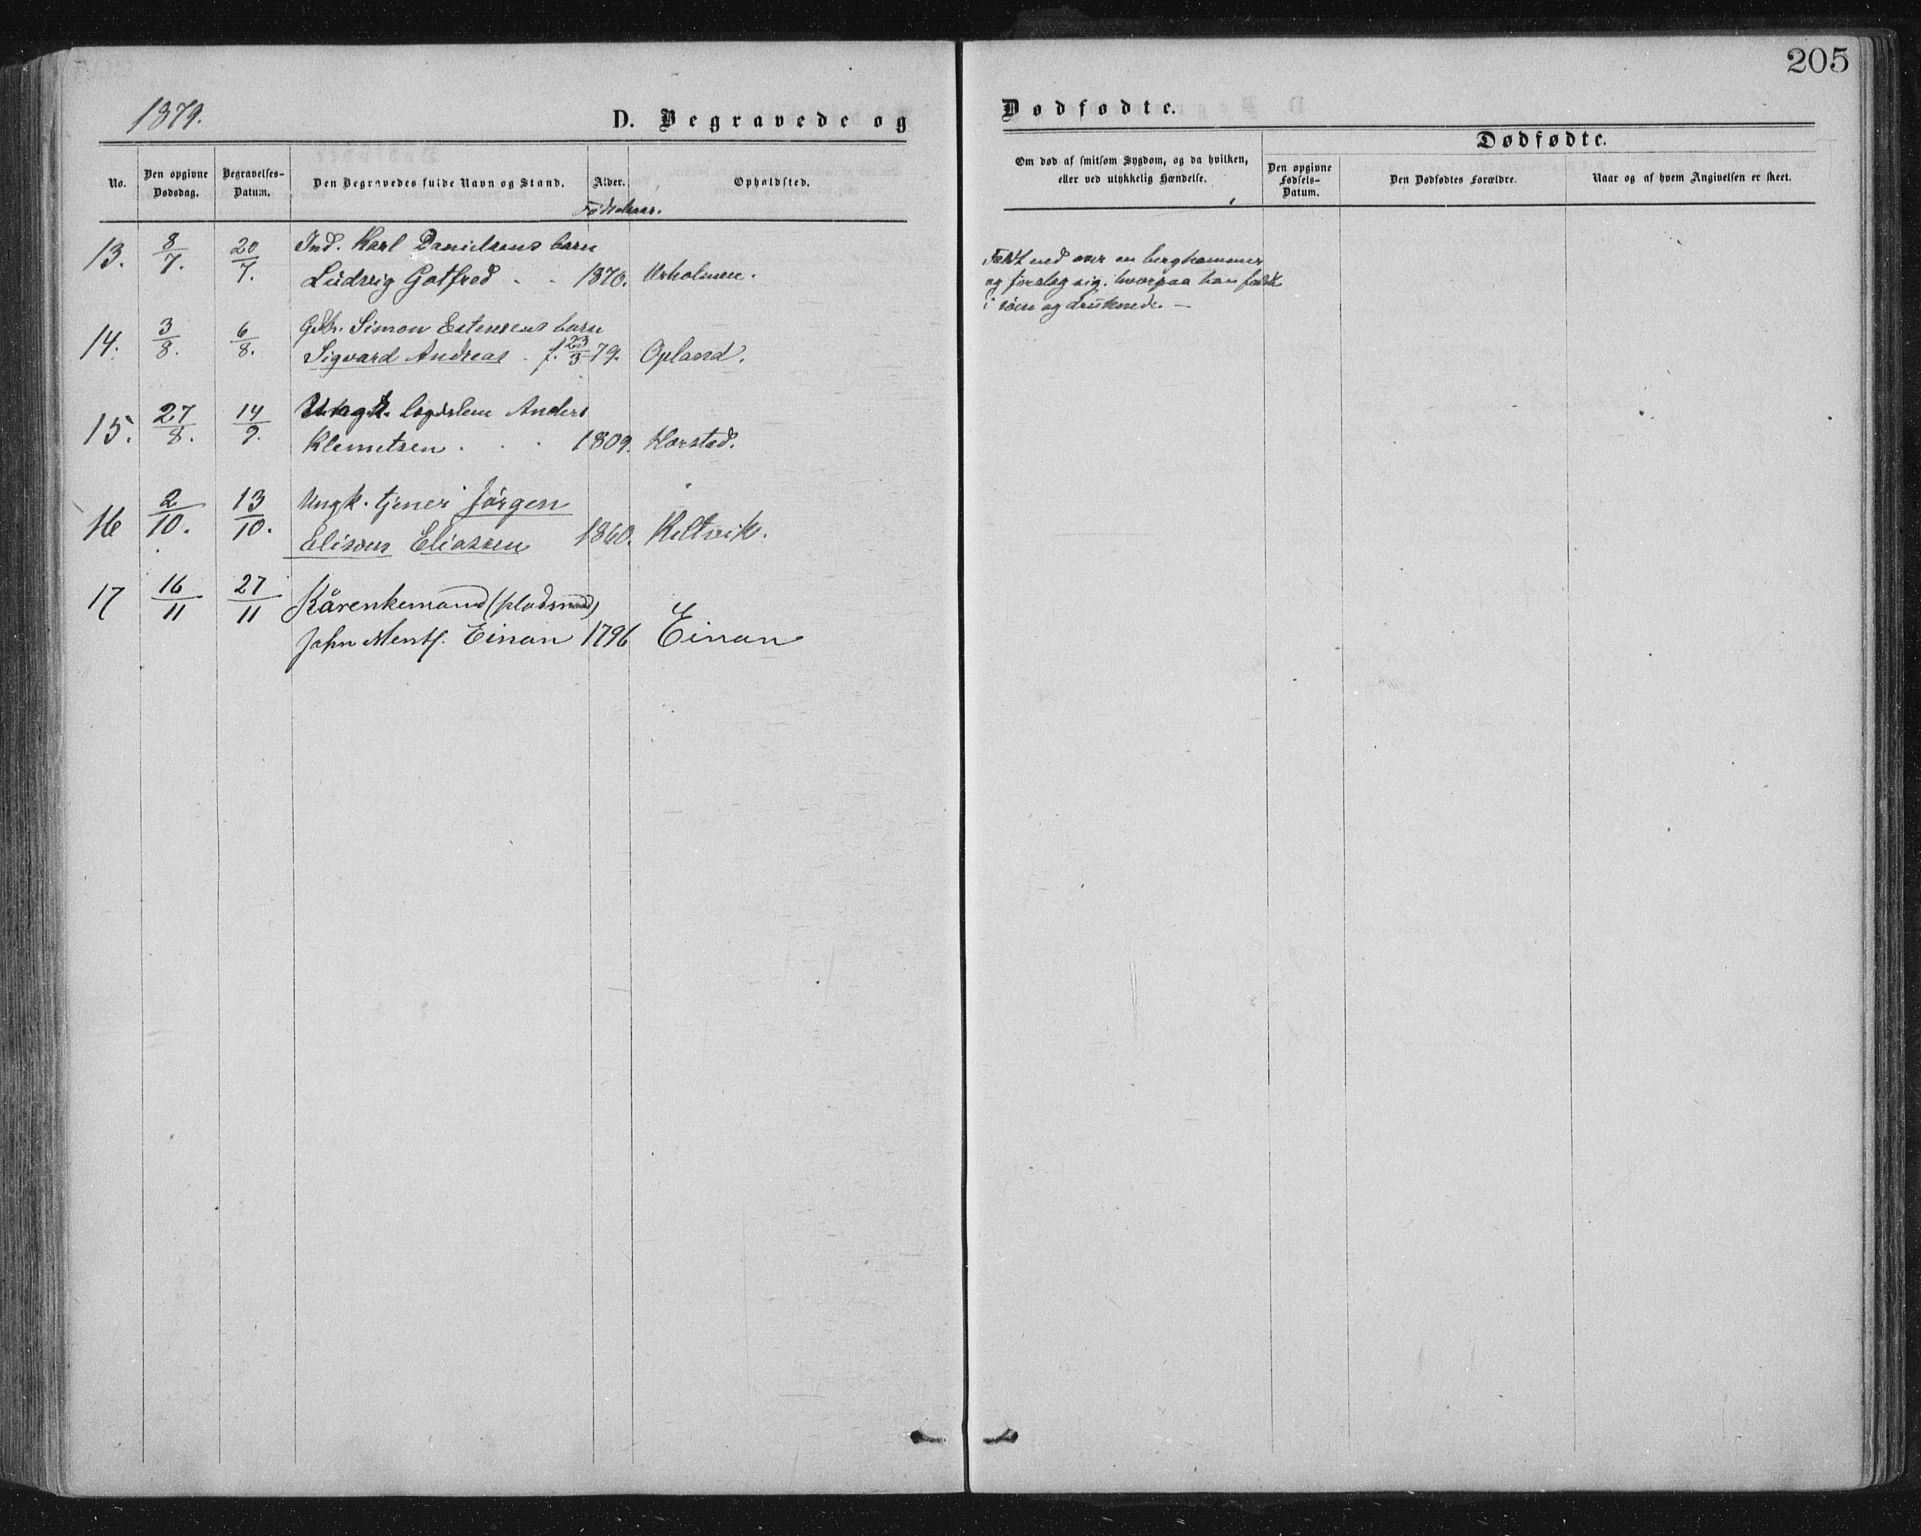 205
1879.
D. Begravede og
Dødfødte.
No.
Den opgivne Dødsdag.
Begravelses-Datum.
Den Begravedes fulde Navn og Stand.
Alder.
Opholdsted.
Fødselsaar.
Om død af smitsom Sygdom, og da hvilken,
eller ved ulykkelig Hændelse.
Dødfødte.
Den opgivne Fødsels-Datum.
Den Dødfødtes Forældre.
Naar og af hvem Angivelsen er skeet.
13. 8/7. 20/7. Ind. Karl Danielsens barn
Ludvig Gotfred . . 1870. Urholmen.
Faldt ned over en berghammer
og forslog sig, hvorpaa han faldt
i søen og druknede. —
14. 3/8. 6/8. Gbr. Simon Estensens barn
Sigvard Andreas . f. 23/3 79. Opland.
15. 27/8. 14/9. Ungk. Anders
Klemetsen . . . 1809. Harstad.
16 2/10. 13/10. Ungk. tjener Jörgen
Elisæus Eliassen 1860. Keltvik.
17 16/11 27/11 Kårenkemand (pladsmand)
John Ments. Einan 1796 Einan